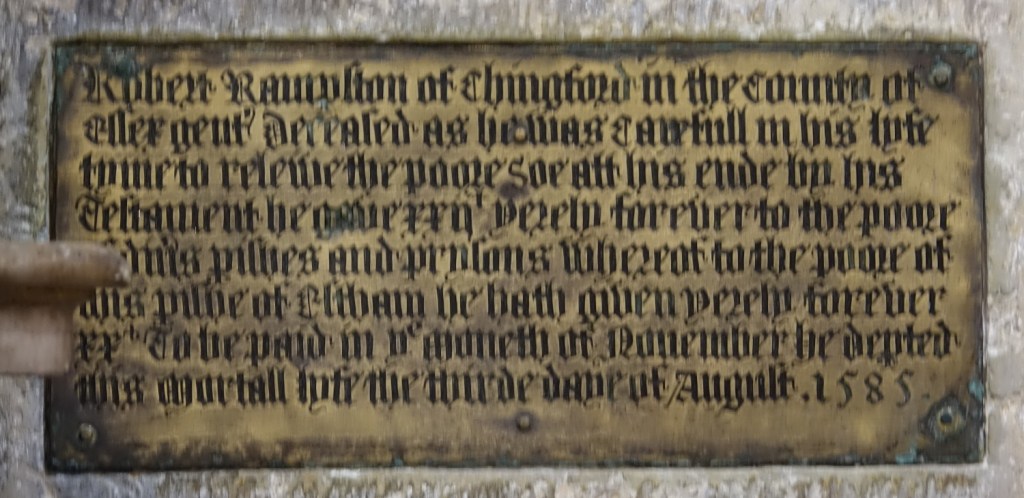 Robert Rampston of Chingford in the County of
Essex gent' deceased as he was Carefull in his lyfe
tyme to releiue the poore Soe att his ende by his
Testament he gaue yerely foreuer to the poore
pishes and prysons Whereof to the poore of
this pishe of he hath giuen yerely foreuer
xxˢ To be paid in yᵉ Moneth of Nouember he depted
this Mortall lyfe the thirde daye of August . 1585 .